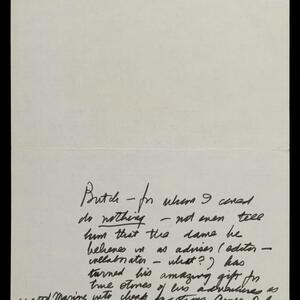 Butch — for whom I cared
do nothing — not even tell
him that the dame he
believes in as adviser (editor —
collaborator — what?) has
turned his amazing gift for
true stories of his adventures as
Marine into cheap